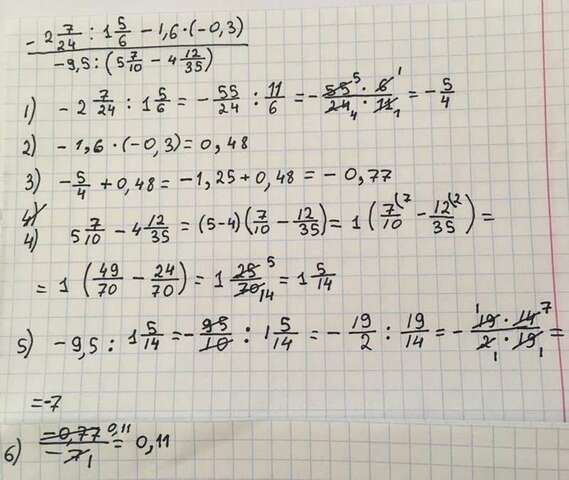 -2 7/24 : 1 5/6 - 1,6 · (-0,3)
-9,5 : (5 7/10 - 4 12/35)
1) -2 7/24 : 1 5/6 = -55/24 : 11/6 = - 55 5 · 6 1 / 24 4 · 11 1 = -5/4
2) -1,6 · (-0,3) = 0,48
3) -5/4 + 0,48 = -1,25 + 0,48 = -0,77
4)
4) 5 7/10 - 4 12/35 = (5-4)(7/10 - 12/35) = 1 (7(7/10 - 12(2/35) =
= 1 (49/70 - 24/70) = 1 25 5/70 14 = 1 5/14
5) -9,5 : 1 5/14 = -95/10 : 1 5/14 = -19/2 : 19/14 = - 1 19 · 14 7 / 2 1 · 19 1 =
= -7
6) -0,77 0,11 / -7 1 = 0,11